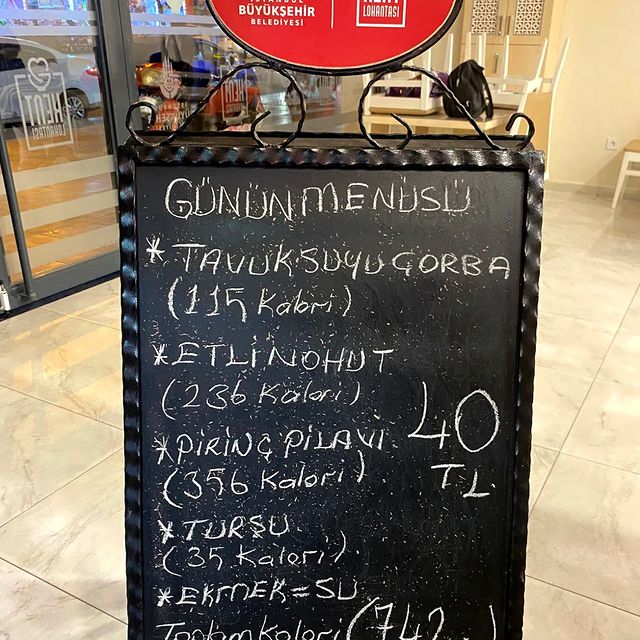 İSTANBUL
BÜYÜKŞEHİR
BELEDİYESİ
KENT
LOKANTASI
KENT
LOKANTASI
KENT
GÜNÜN MENÜSÜ
* TAVUK SUYU ÇORBA
(115 Kalori)
* ETLİ NOHUT
(236 Kalori)
* PİRİNÇ PİLAVI
(356 Kalori)
40
TL
* TURŞU
(35 Kalori)
* EKMEK = SU
Toplam Kalori (742